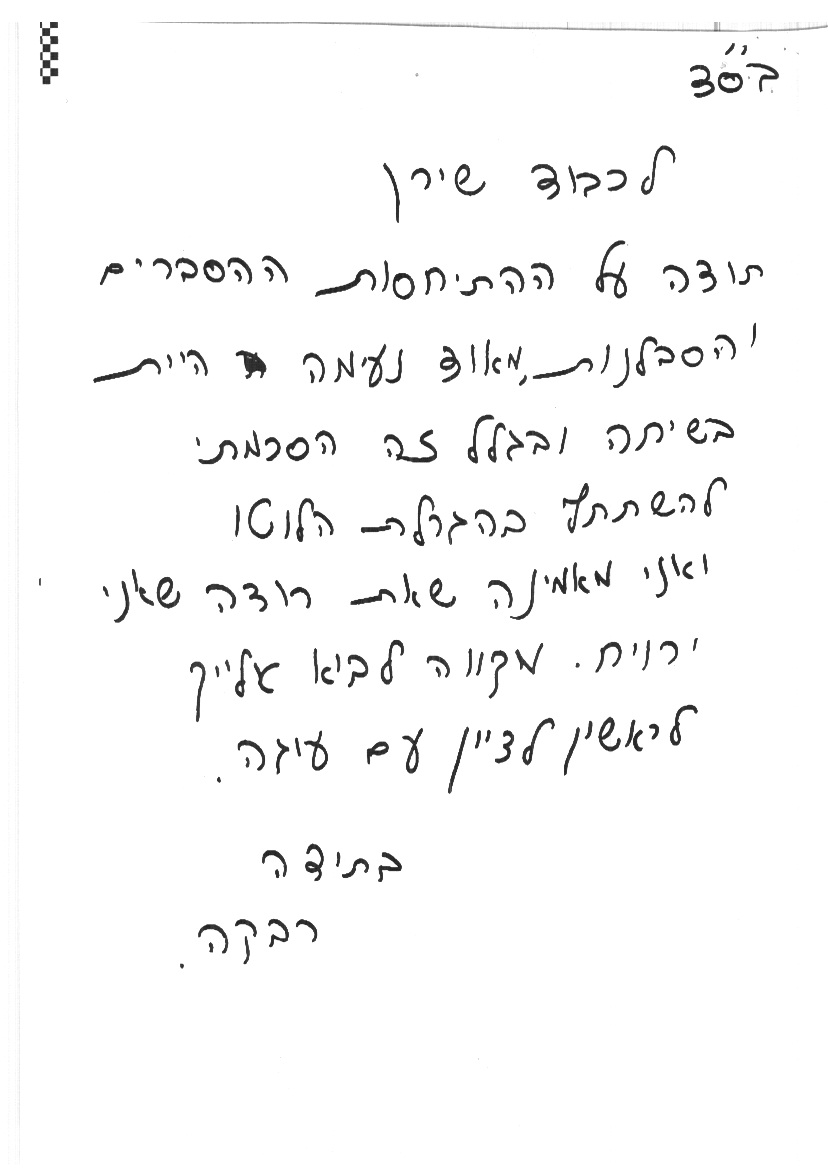 בס"ד
לכבוד שירן
תודה על ההתיחסות ההסברים
והסבלנות, מאוד נעימה היית
בשיחה ובגלל זה הסכמתי
להשתתף בהגרלת הלוטו
ואני מאמינה שאת רוצה שאני
ירויח. מקווה לביא אלייך
לראשין לציין עם עוגה.
בתידה
רבקה.